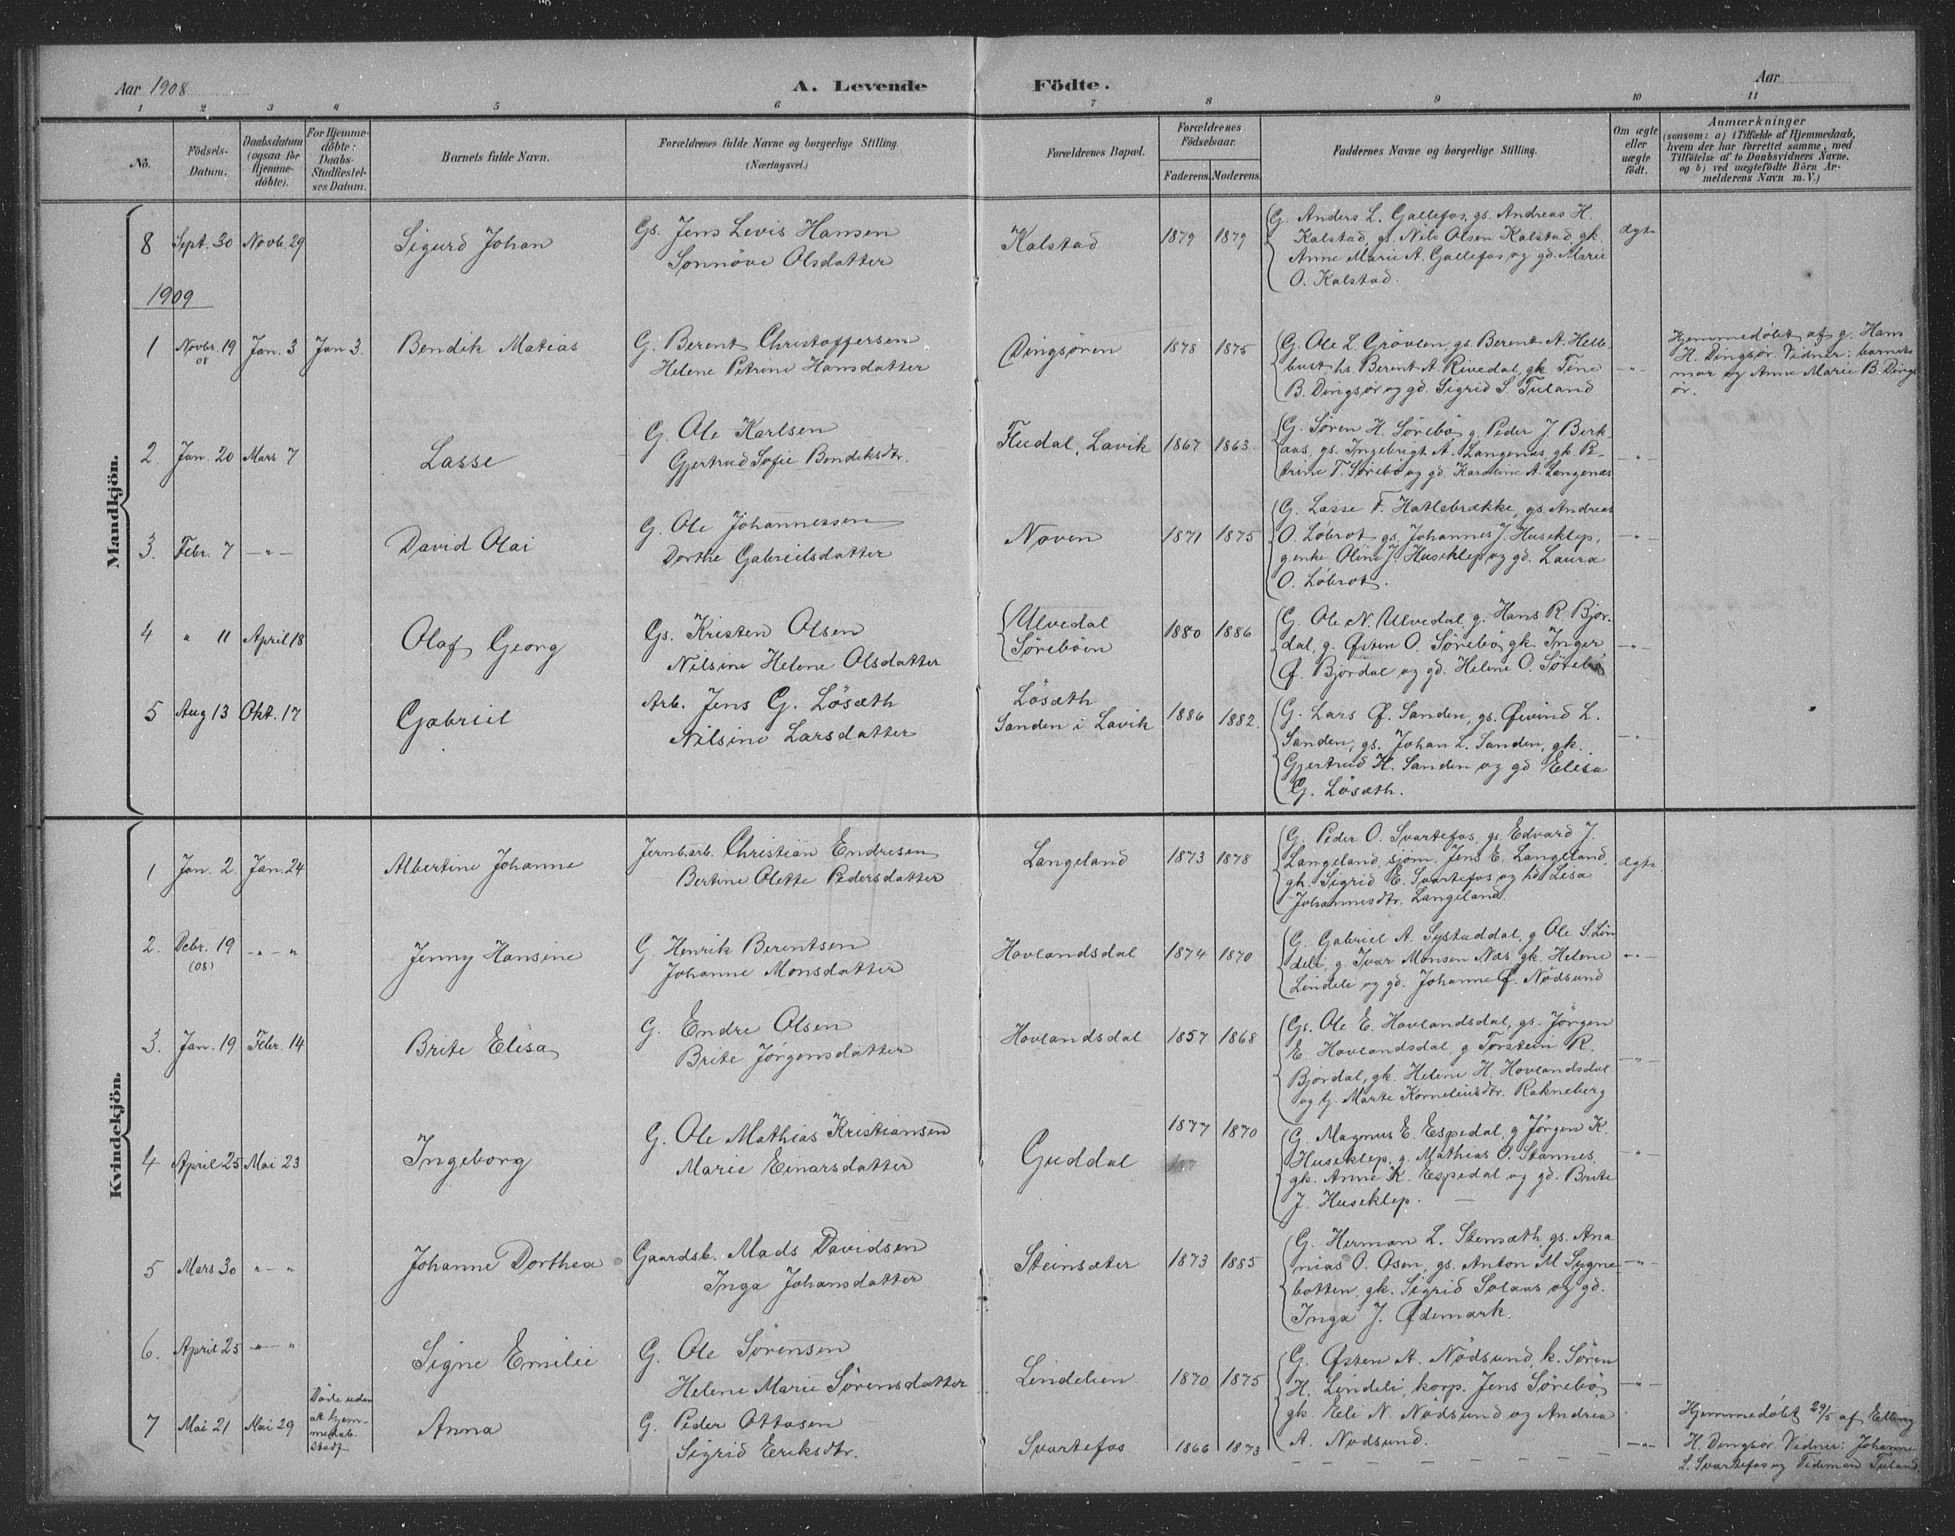 Aar 1908 A. Levende Födte. Aar
1 2 3 4 5 6 7 8 9 10 11
No. Födsels-Datum. Daabsdatum (ogsaa for Hjemmedöbte). For Hjemmedöbte: Daabs-Stadfæstelses Datum. Barnets fulde Navn. Forældrenes fulde Navne og borgerlige Stilling. (Næringsvei.) Forældrenes Bopæl. Forældrenes Födselsaar. Faderens. Moderens. Faddernes Navne og borgerlige Stilling. Om ægte eller uægte födt. Anmærkninger (saasom: a) i Tilfælde af Hjemmedaab, hvem der har forrettet samme, med Tilföielse af to Daabsvidners Navne, og b) ved uægtefödte Börn Anmelderens Navn m. V.)
Mandkjön.
8 Sept. 30 Novb. 29 Sigurd Johan Gs. Jens Levis Hansen Kalstad 1879 1879 G. Anders L. Gallefos, gs. Andreas H. Ægte
Sønnøve Olsdatter Kalstad, gs. Nils Olsen Kalstad gk.
Anne Marie A. Gallefos og gd. Marie
O. Kalstad.
1909
1 Novbr. 19 08 Jan. 3 Jan 3. Bendik Matias G. Berent Christoffersen Dingsøren 1878 1875 G. Ole L. Grøvlen, gs. Berent A. Helle- — „ — Hjemmedøbt af g. Hans
Helene Petrine Hansdatter bust hs. Berent A. Rivedal, gk. Tine H. Dingsør. Vidner: barnets
B. Dingsør og gd. Sigrid S. Tuland mor og Anne Marie B. Dings
ør.
2. Jan. 20 Mars 7 Lasse G. Ole Karlsen Fludal, Lavik 1867 1863 G. Søren H. Sørebø g. Peder J. Birk- — „ —
Gjertrud Sofie Bendiksdtr. aas, gs. Ingebrigt A. Langenæs, gk. Pe-
trine T. Sørebø og gd. Karoline A. Langenæs
3. Febr. 7 — „ — David Olai G. Ole Johannessen Noven 1871 1875 G. Lasse F. Hatlebrække, gs. Andreas — „ —
Dorthe Gabrielsdatter O. Løbrot gs. Johannes J. Huseklep,
g.enke Oline J. Huseklep og gd. Laura
O. Løbrot.
4 „ 11 April 18 Olaf Georg Gs. Kristen Olsen Ulvedal 1880 1886 G. Ole N. Ulvedal g. Hans R. Bjor- — „ —
Nilsine Helene Olsdatter Sørebøen dal, g. Østen O. Sørebø gk. Inger
Ø. Bjordal og gd. Helene O. Sørebø
5 Aug 13 Okt. 17 Gabriel Arb. Jens G. Løsæth Løsæth 1886 1882 G. Lars Ø. Sanden, gs. Øivind L. — „ —
Nilsine Larsdatter Sanden i Lavik Sanden, gs. Johan L. Sanden, gk.
Gjertrud H. Sanden og gd Elisa
G. Løsæth.
Kvindekjön.
1 Jan. 2 Jan. 24 Albertine Johanne Jernb.arb. Christian Endresen Langeland 1873 1878 G. Peder O. Svartefos, gs. Edvard J. Ægte
Bertine Olette Pedersdatter Langeland sjøm. Jens E. Langeland,
gk. Sigrid E. Svartefos og hd. Lisa
Johannesdtr. Langeland.
2. Debr. 19 (08) — „ — „ Jenny Hansine G Henrik Berentsen Hovlandsdal 1874 1870 G. Gabriel A. Systaddal, g Ole S. Lin — „ —
Johanne Monsdatter deli, g. Ivar Monsen Næs gk. Helene
Lindeli og gd. Johanne Ø. Nødsund
3. Jan. 19 Febr. 14 Brite Elisa G. Endre Olsen Hovlandsdal 1857 1868 Gs. Ole E. Hovlandsdal, gs. Jørgen — „ —
Brite Jørgensdatter E. Hovlandsdal, g Torstein R.
Bjordal, gk. Helene H. Hovlandsdal
og G. Marte Korneliusdtr. Rakneberg
4 April 25 Mai 23 Ingeborg G. Ole Mathias Kristiansen Guddal 1877 1870 G. Magnus E. Espedal, g Jørgen K. — „ —
Marie Einarsdatter Huseklep, g. Mathias O. Stannes,
gk. Anne K. Espedal og gd. Brite
J. Huseklep.
5 Mars 30 „ — „ Johanne Dorthea Gaardsb. Mads Davidsen Steinsæter 1873 1885 G. Herman L. Stensæth, gs. Ana — „ —
Inga Johansdatter nias O. Osen, gs. Anton M Sygne-
botten, gk. Sigrid Solaas og gd.
Inga J. Ødemark.
6. April 25 — „ — „ Signe Emilie G. Ole Sørensen Lindelien 1870 1875 G. Østen A. Nødsund, k. Søren — „ —
Helene Marie Sørensdatter H. Lindeli, korp. Jens Sørebø,
gk Eli N. Nødsund og Andrea
A. Nødsund.
7 Mai 21 Mai 29 Døde uden at hjemmedaab. Stadf Anna G. Peder Ottosen Svartefos 1866 1873 — — — — — „ — Hjemmedøbt 29/5 af Elling
Sigrid Eriksdtr. H. Dingsør. Vidner: Johanne
L. Svartefos og Tideman Tuland